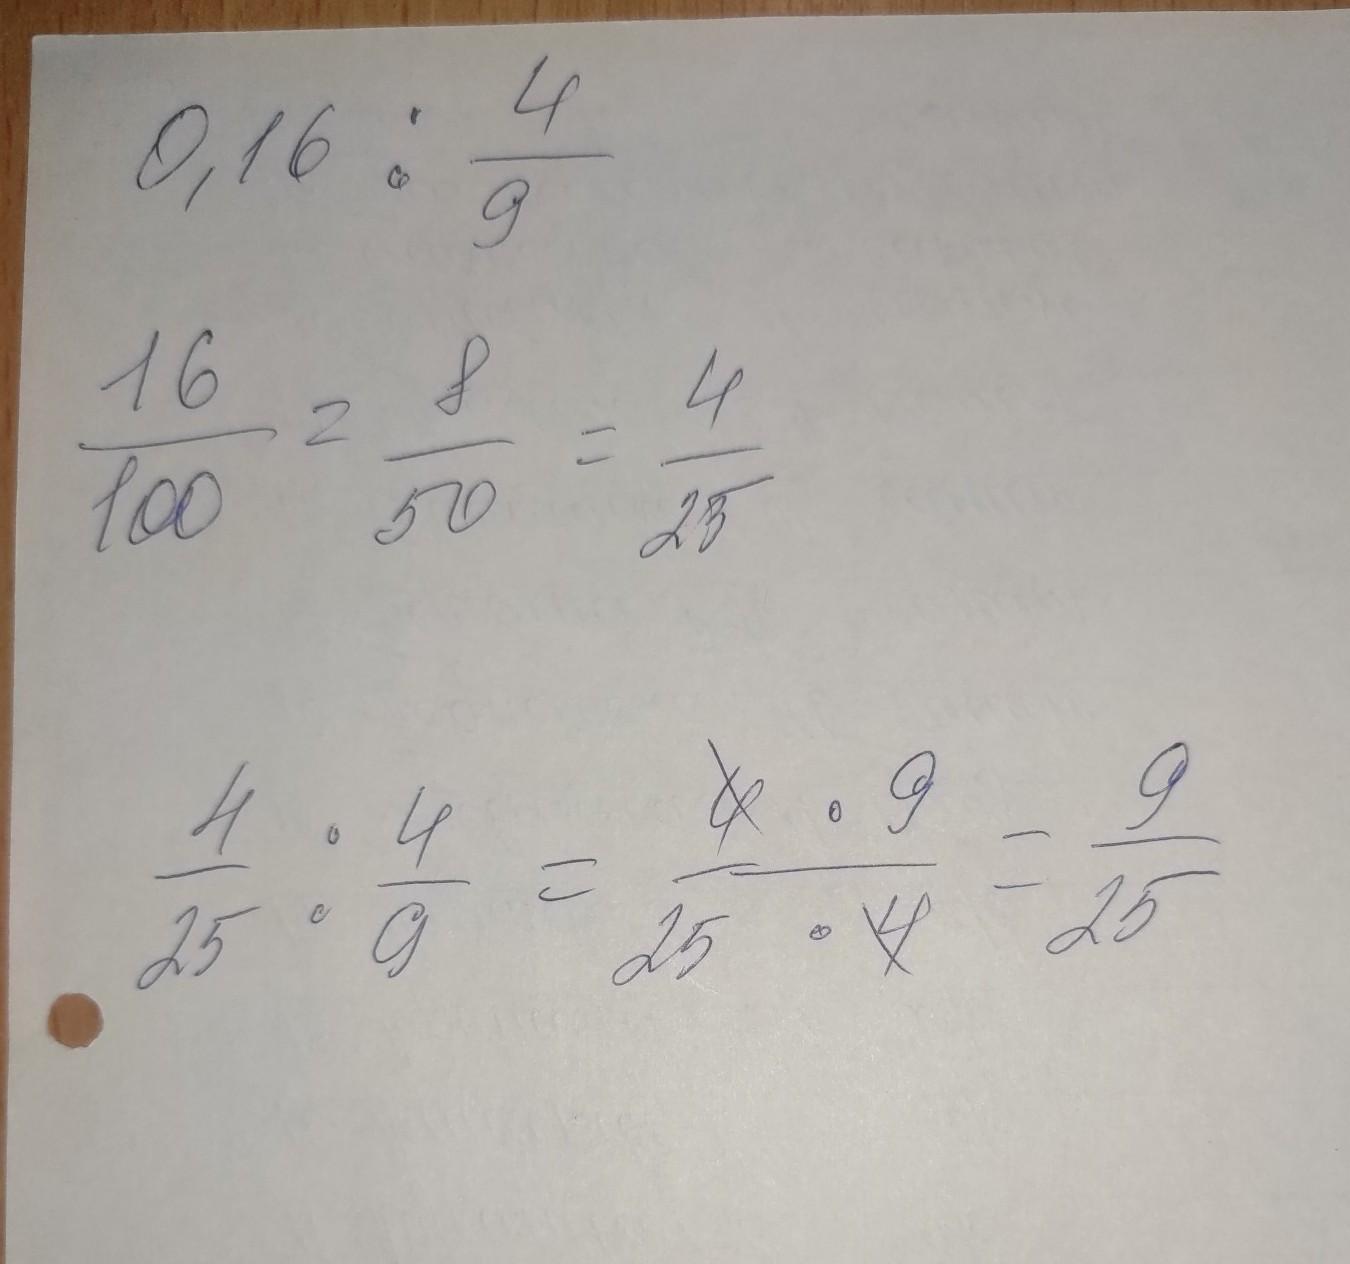 0,16 : 4/9
16/100 = 8/50 = 4/25
4/25 : 4/9 = 4 · 9 / 25 · 4 = 9/25